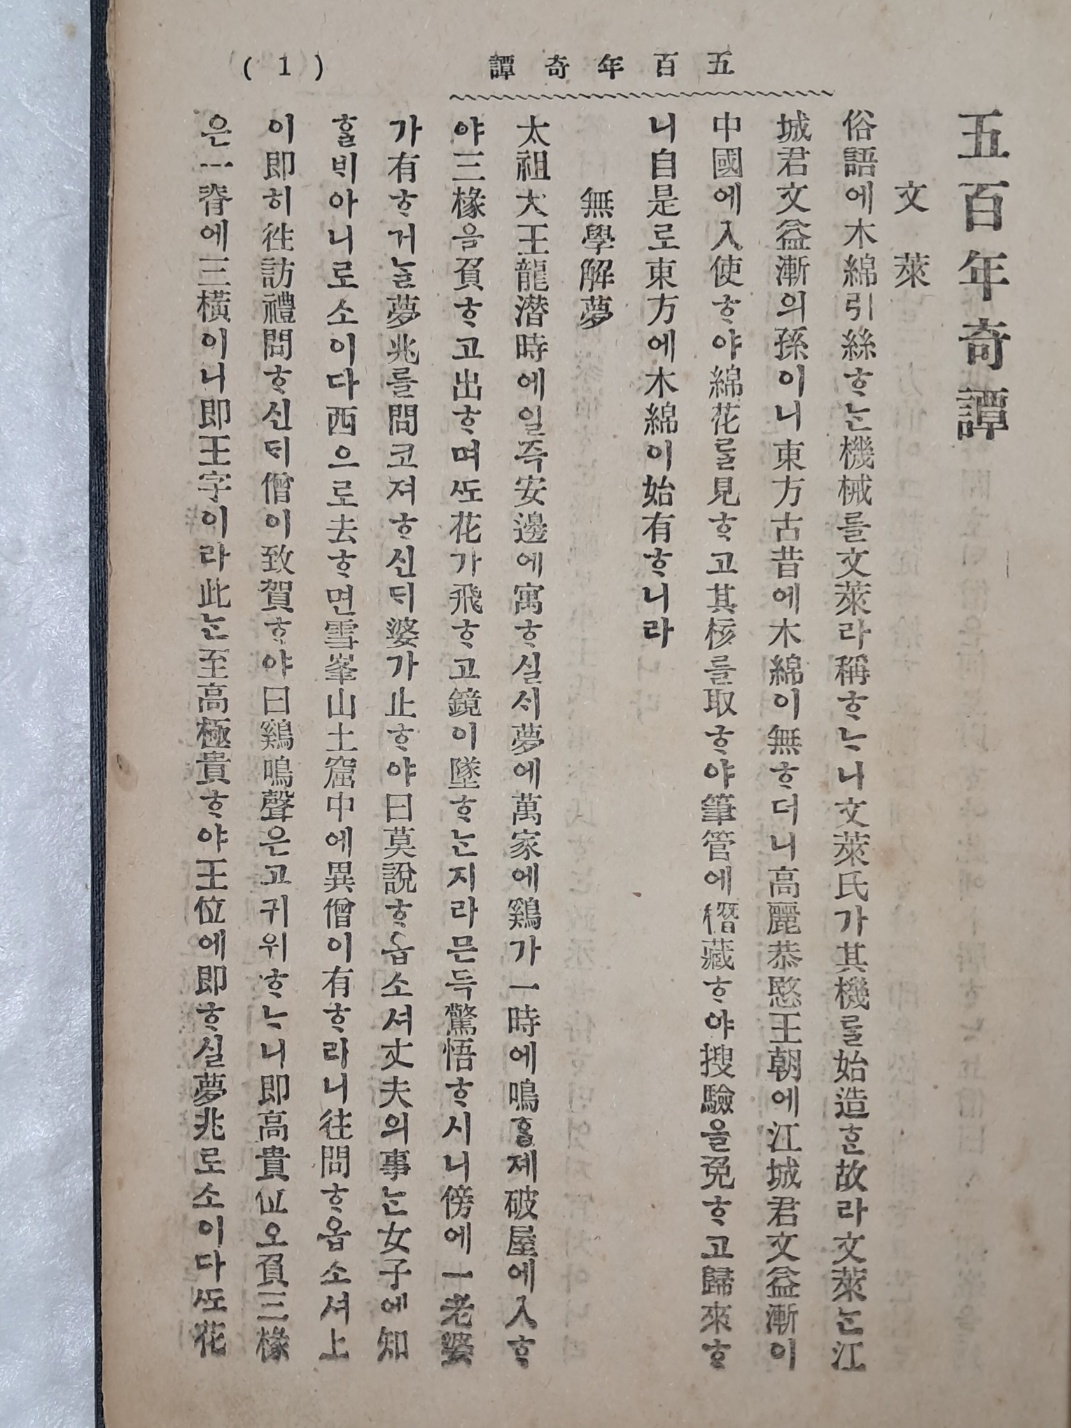 五百年奇譚
(1)
五百年奇譚
文萊
俗語에木綿引絲ᄒᆞᄂᆞᆫ機械를文萊라稱ᄒᆞᄂᆞ니文萊氏가其機ᄅᆞᆯ始造ᄒᆞᆫ故라文萊ᄂᆞᆫ江
城君文益漸의孫이니東方古昔에木綿이無ᄒᆞ더니高麗恭愍王朝에江城君文益漸이
中國에入使ᄒᆞ야綿花ᄅᆞᆯ見ᄒᆞ고其核를取ᄒᆞ야筆管에潛藏ᄒᆞ야搜驗을免ᄒᆞ고歸來ᄒᆞ
니自是로東方에木綿이始有ᄒᆞ니라
無學解夢
太祖大王龍潛時에일즉安邊에寓ᄒᆞ실ᄉᆡ夢에萬家에鷄가一時에鳴ᄒᆞᆯ제破屋에入ᄒᆞ
야三椽음負ᄒᆞ고出ᄒᆞ며ᄯᅩ花가飛ᄒᆞ고鏡이墜ᄒᆞᄂᆞᆫ지라믄득驚悟ᄒᆞ시니傍에一老婆
가有ᄒᆞ거ᄂᆞᆯ夢兆를問코져ᄒᆞ신ᄃᆡ婆가止ᄒᆞ야曰莫說ᄒᆞ옵소셔丈夫의事ᄂᆞᆫ女子에知
ᄒᆞᆯᄇᆡ아니로소이다西으로去ᄒᆞ면雪峯山土窟中에異僧이有ᄒᆞ라니往問ᄒᆞ옵소셔上
이即히徃訪禮問ᄒᆞ신ᄃᆡ僧이致賀ᄒᆞ야曰鷄鳴聲은고귀위ᄒᆞᄂᆞ니即高貴位오負三椽
은一脊에三橫이니即王字이라此ᄂᆞᆫ至高極貴ᄒᆞ야王位에即ᄒᆞ실夢兆로소이다ᄯᅩ花